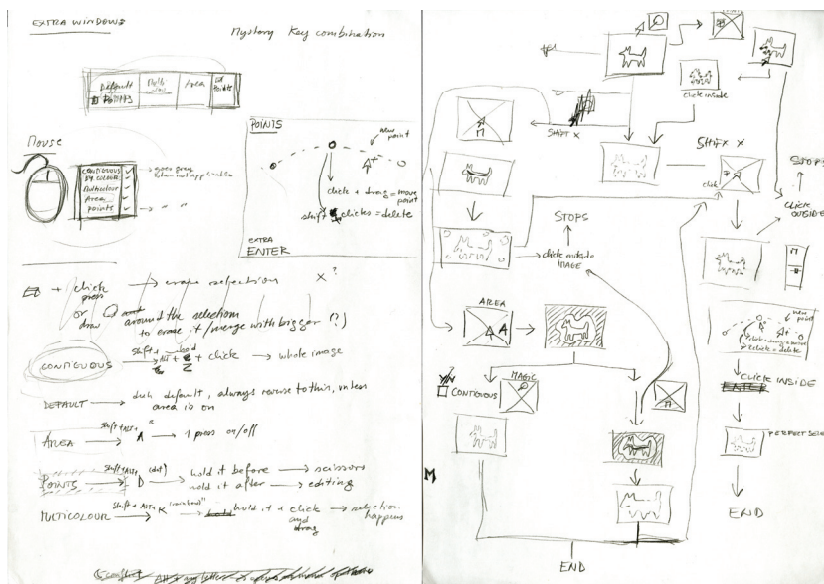 EXTRA WINDOWS
Mystery Key combination
Default
POINTS
Area
Points
Mouse
CONTIGUOUS
BY COLOUR
Multicolour
Area
points
goes grey
POINTS
new point
click + drag = move point
shift clicks = delete
EXTRA
ENTER
+ click → erase selection X?
press
or draw around the selection
to erase it / merge with bigger (?)
CONTIGUOUS shift + + click → whole image
DEFAULT → default, always reverse to this, unless
area is on
AREA shift+ALT+ A → 1 press on/off
POINTS shift+ALT+ D (dot) → hold it before → scissors
hold it after → editing
MULTICOLOUR shift + ALT + K → hold it + click → selection
and drag happens
click inside
SHIFT X
SHIFT X
click
STOPS
CLICK
OUTSIDE
STOPS
click outside
IMAGE
AREA
A
new point
click = delete
CONTIGUOUS
MAGIC
CLICK INSIDE
ENTER
PERFECT SELE
M
END
END